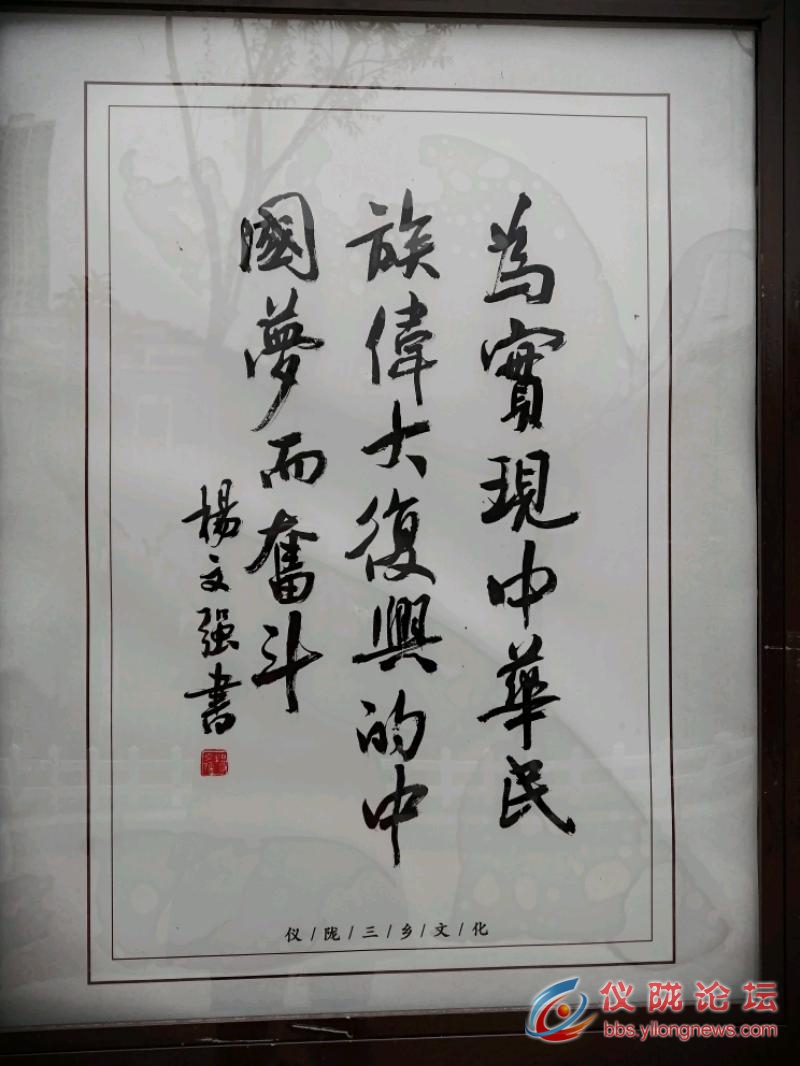 為實現中華民
族偉大復興的中
國夢而奮斗
楊文强書
仪/陇/三/乡/文/化
仪陇论坛
bbs.yilongnews.com